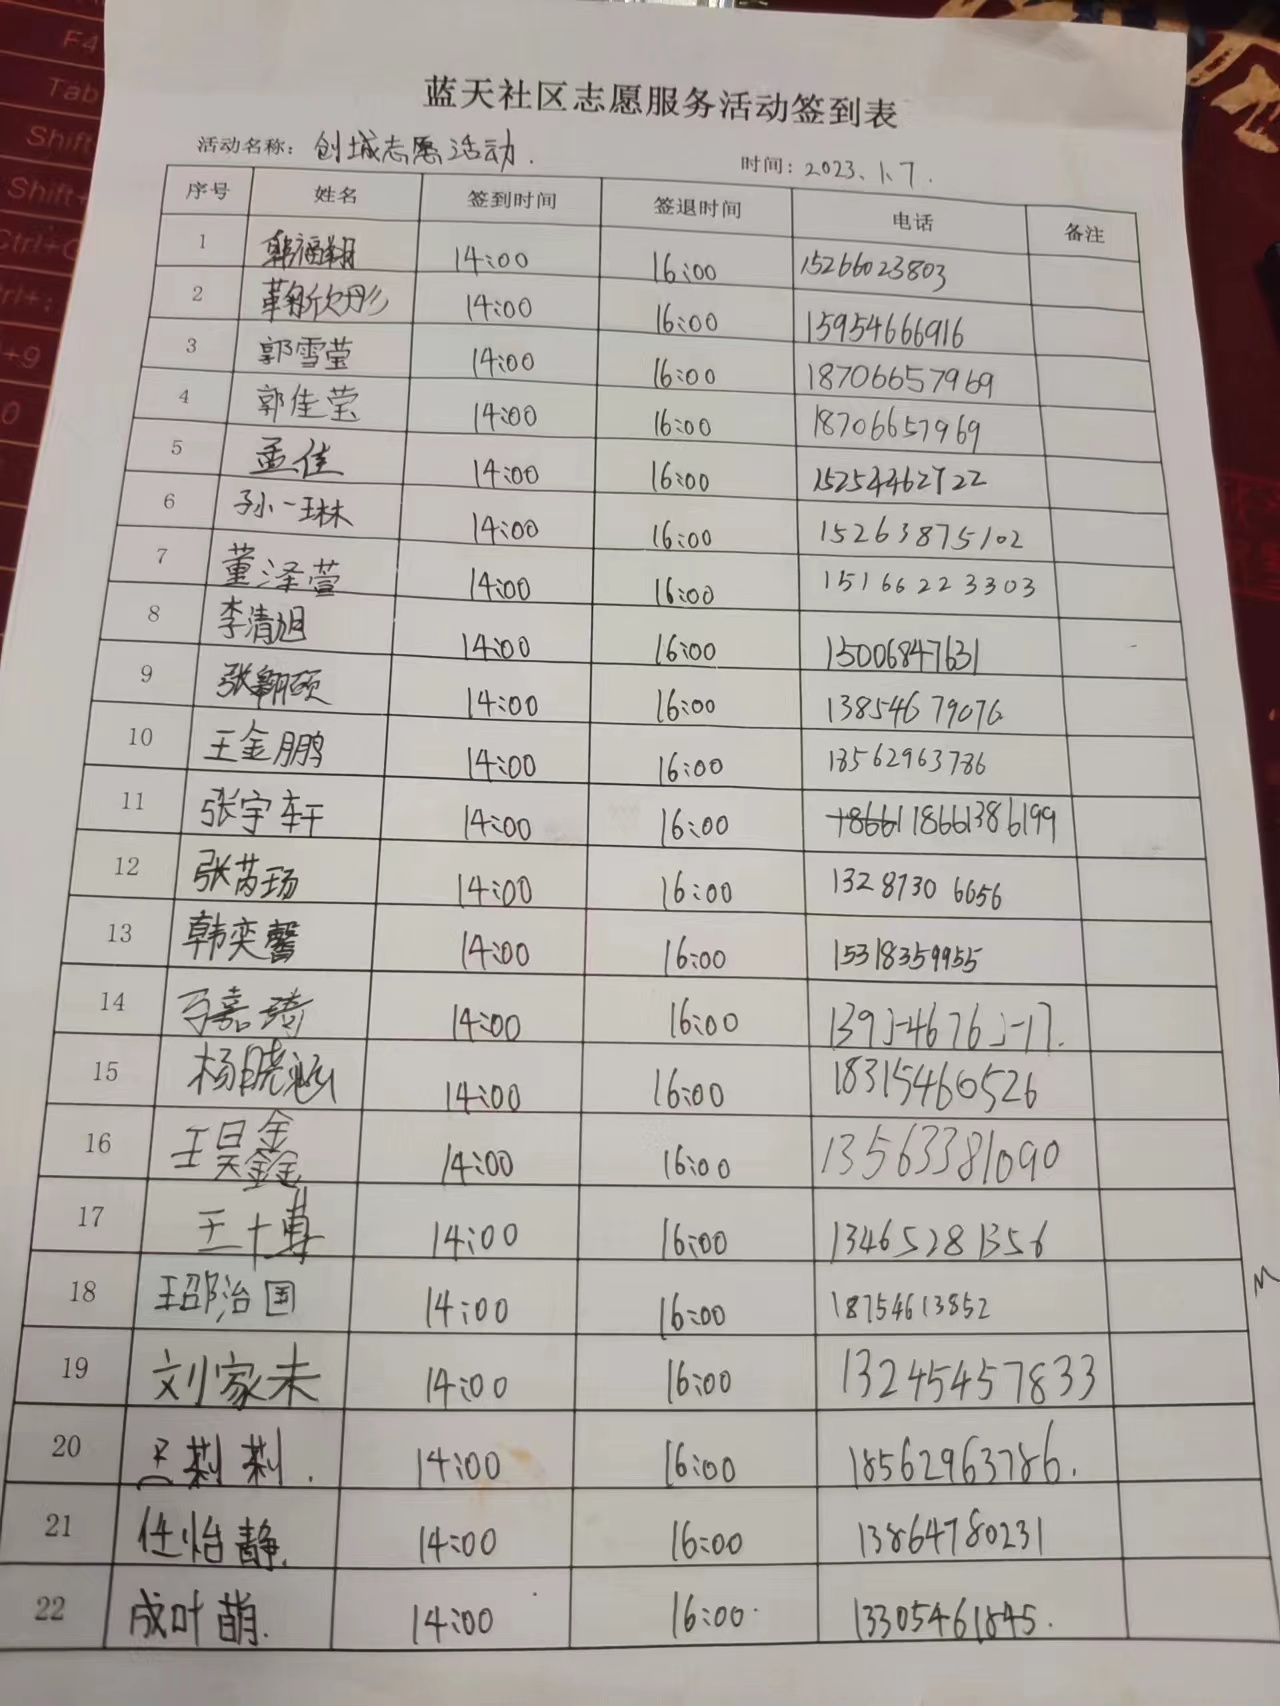 蓝天社区志愿服务活动签到表
活动名称：创城志愿活动. 时间：2023.1.7.
序号 姓名 签到时间 签退时间 电话 备注
1 韩福翔 14:00 16:00 15266023803
2 14:00 16:00 15954666916
3 郭雪莹 14:00 16:00 18706657969
4 郭佳莹 14:00 16:00 18706657969
5 孟佳 14:00 16:00
6 孙一琳 14:00 16:00 15263875102
7 董泽萱 14:00 16:00 15166223303
8 李清旭 14:00 16:00 15006847631
9 张翱硕 14:00 16:00 13854679076
10 王金鹏 14:00 16:00 18562963786
11 张宇轩 14:00 16:00 18661386199
12 张芮玚 14:00 16:00 13287306656
13 韩奕馨 14:00 16:00 15318359955
14 万嘉琦 14:00 16:00
15 杨晓涵 14:00 16:00 18315460526
16 王昊鑫 14:00 16:00 13563381090
17 王博 14:00 16:00 13465281356
18 邵治国 14:00 16:00 18754613852
19 刘家未 14:00 16:00 13245457833
20 14:00 16:00 18562963786.
21 任怡静. 14:00 16:00 13864780231
22 成叶萌. 14:00 16:00 13305461845.